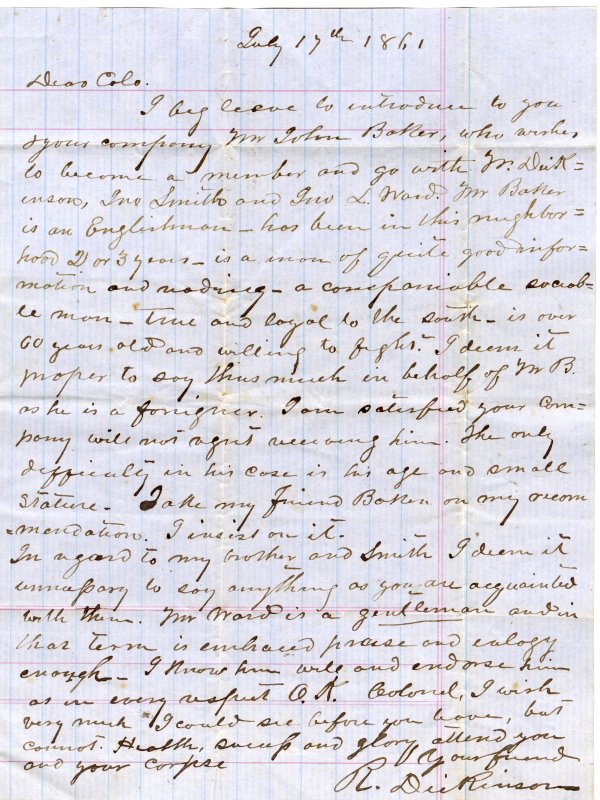 July 17th 1861
Dear Colo.
I beg leave to introduce to you
& your company Mr John Baker, who wishes
to become a member and go with W. Dick=
inson, Jno Smith and Jno L. Ward. Mr Baker
is an Englishman - has been in this neighbor=
hood 2 or 3 years - is a man of quite good infor=
mation and reading - a companiable sociab-
le man - true and loyal to the south - is over
60 years old and willing to fight. I deem it
proper to say thus much in behalf of Mr B.
as he is a forrigner. I am satisfied your com-
pany will not regret receiving him. The only
difficulty in his case is his age and small
stature - Take my friend Baker on my recom
=mendation. I insist on it.
In regard to my brother and Smith I deem it
unnessary to say anything as you are acquainted
with them. Mr Ward is a gentleman and in
that term is embraced praise and eulogy
enough - I know him well and endorse him
as in every respect O.K. Colonel, I wish
very much I could see before you leave, but
cannot. Health, success and glory attend you
and your corpse
Your friend
R. Dickinson